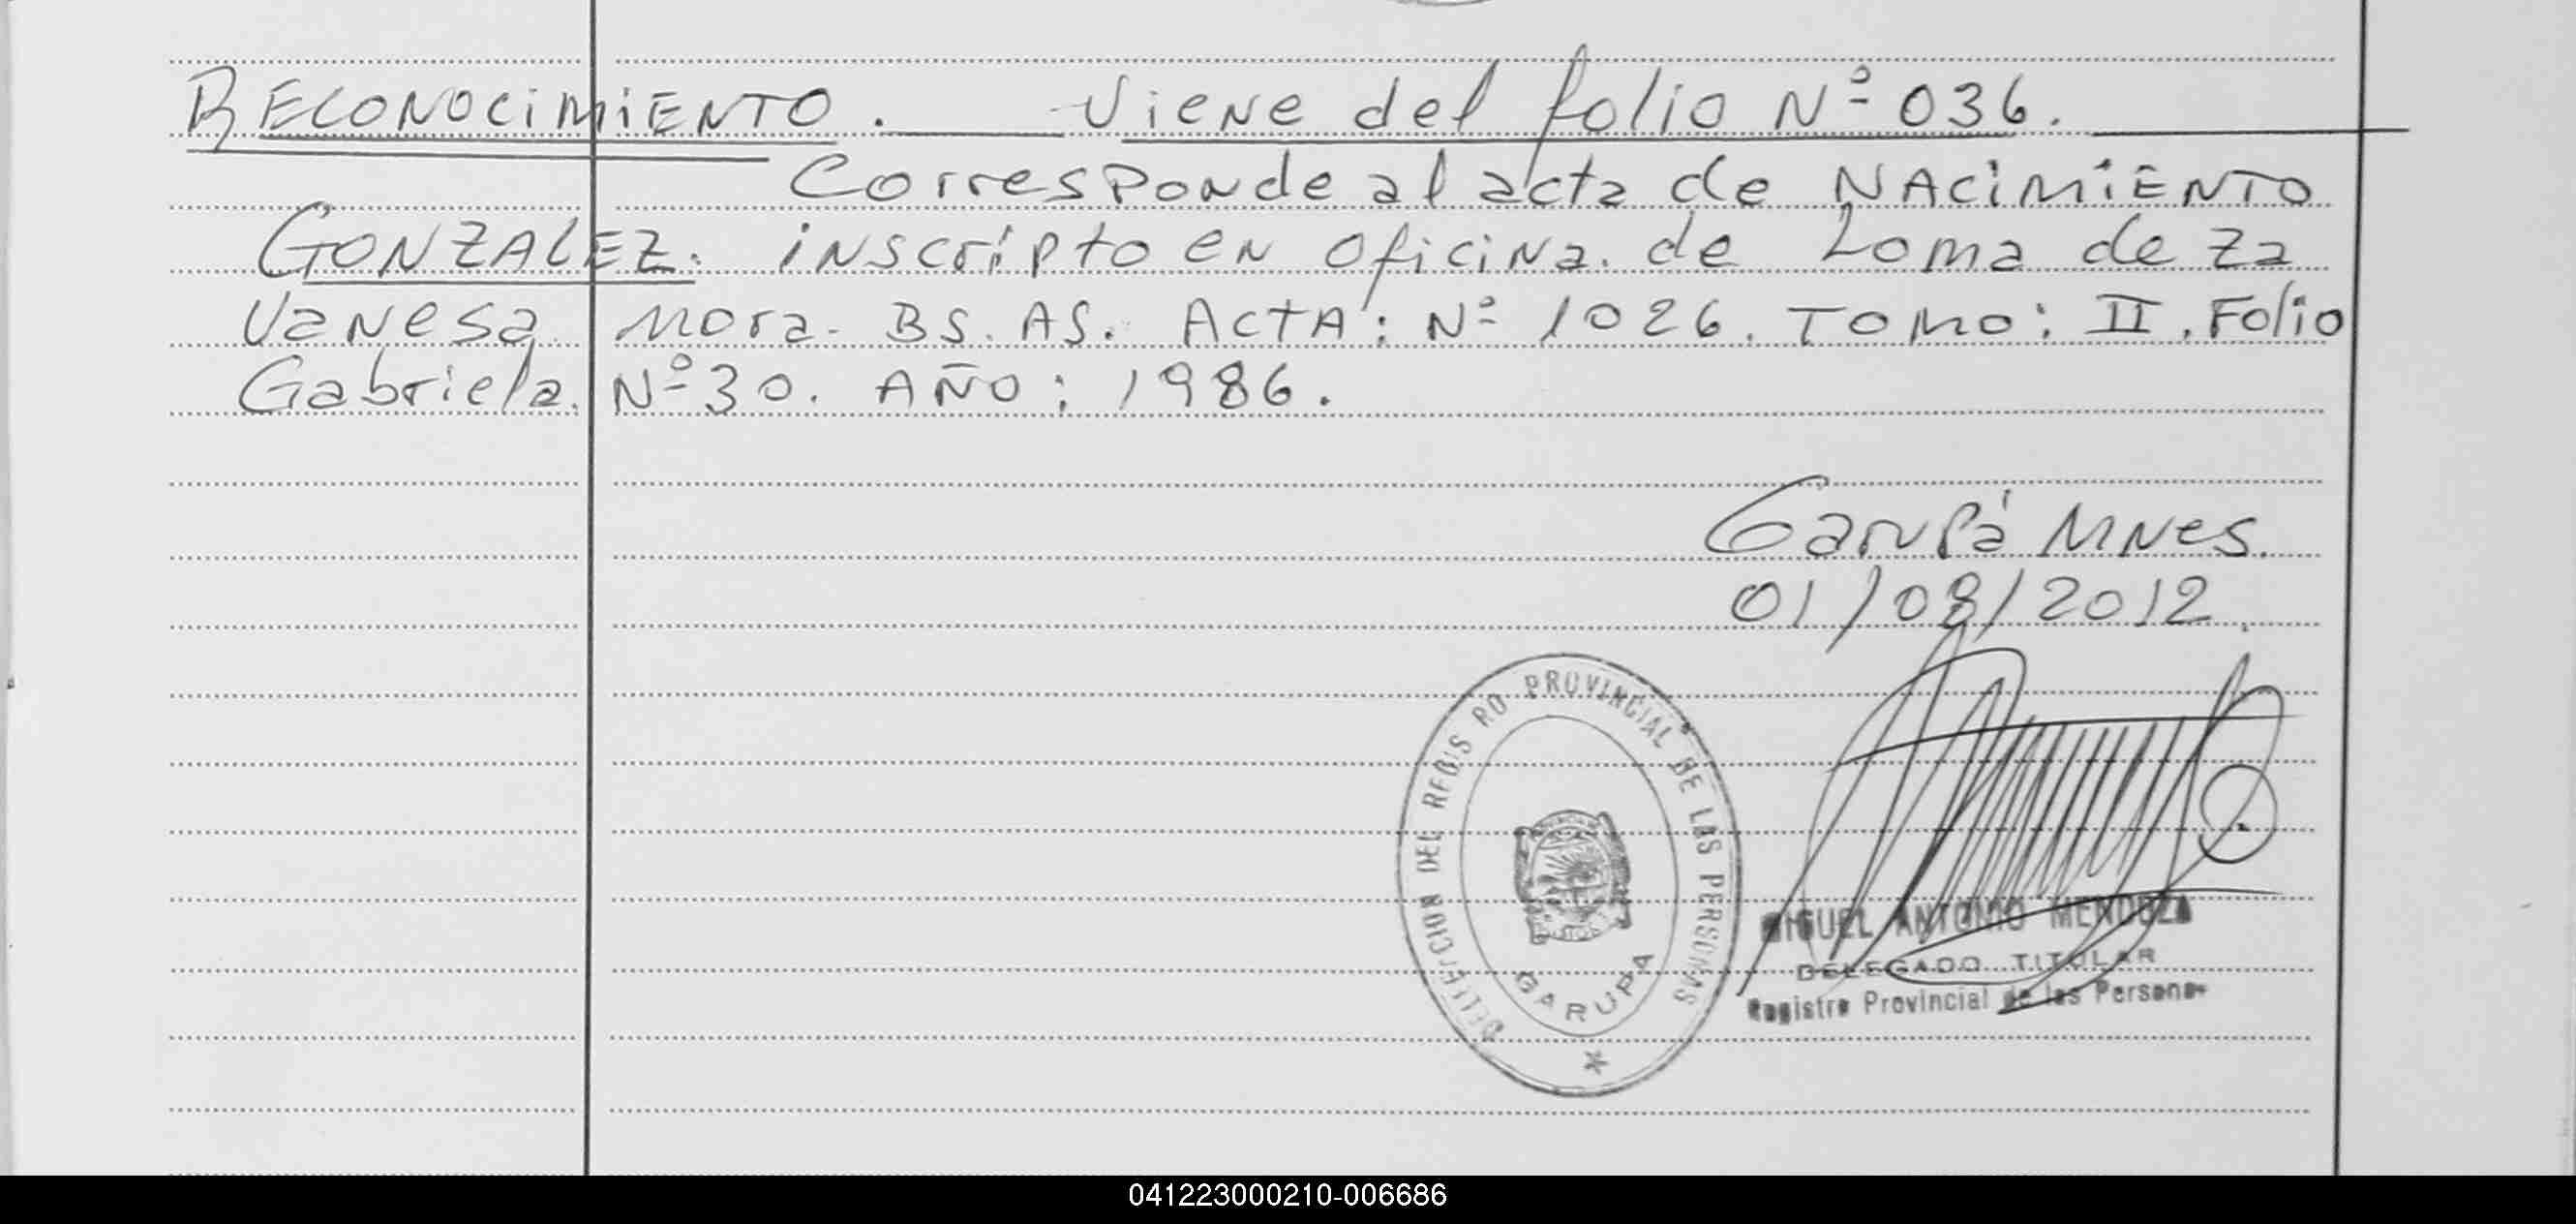 RECONOCIMIENTO. Viene del folio Nº 036.
Corresponde al acta de NACIMIENTO
GONZALEZ. inscripto en oficina. de Loma de Za
Vanesa mora. BS. AS. ACTA: Nº 1026. TOMO: II. Folio
Gabriela. Nº 30. AÑO: 1986.
Garupá MNes.
01/08/2012.
DELEGACION DEL REGIS RO PROVINCIAL DE LAS PERSONAS
GARUPA
MIGUEL ANTONIO MENDOZA
DELEGADO TITULAR
Registro Provincial de las Personas
041223000210-006686